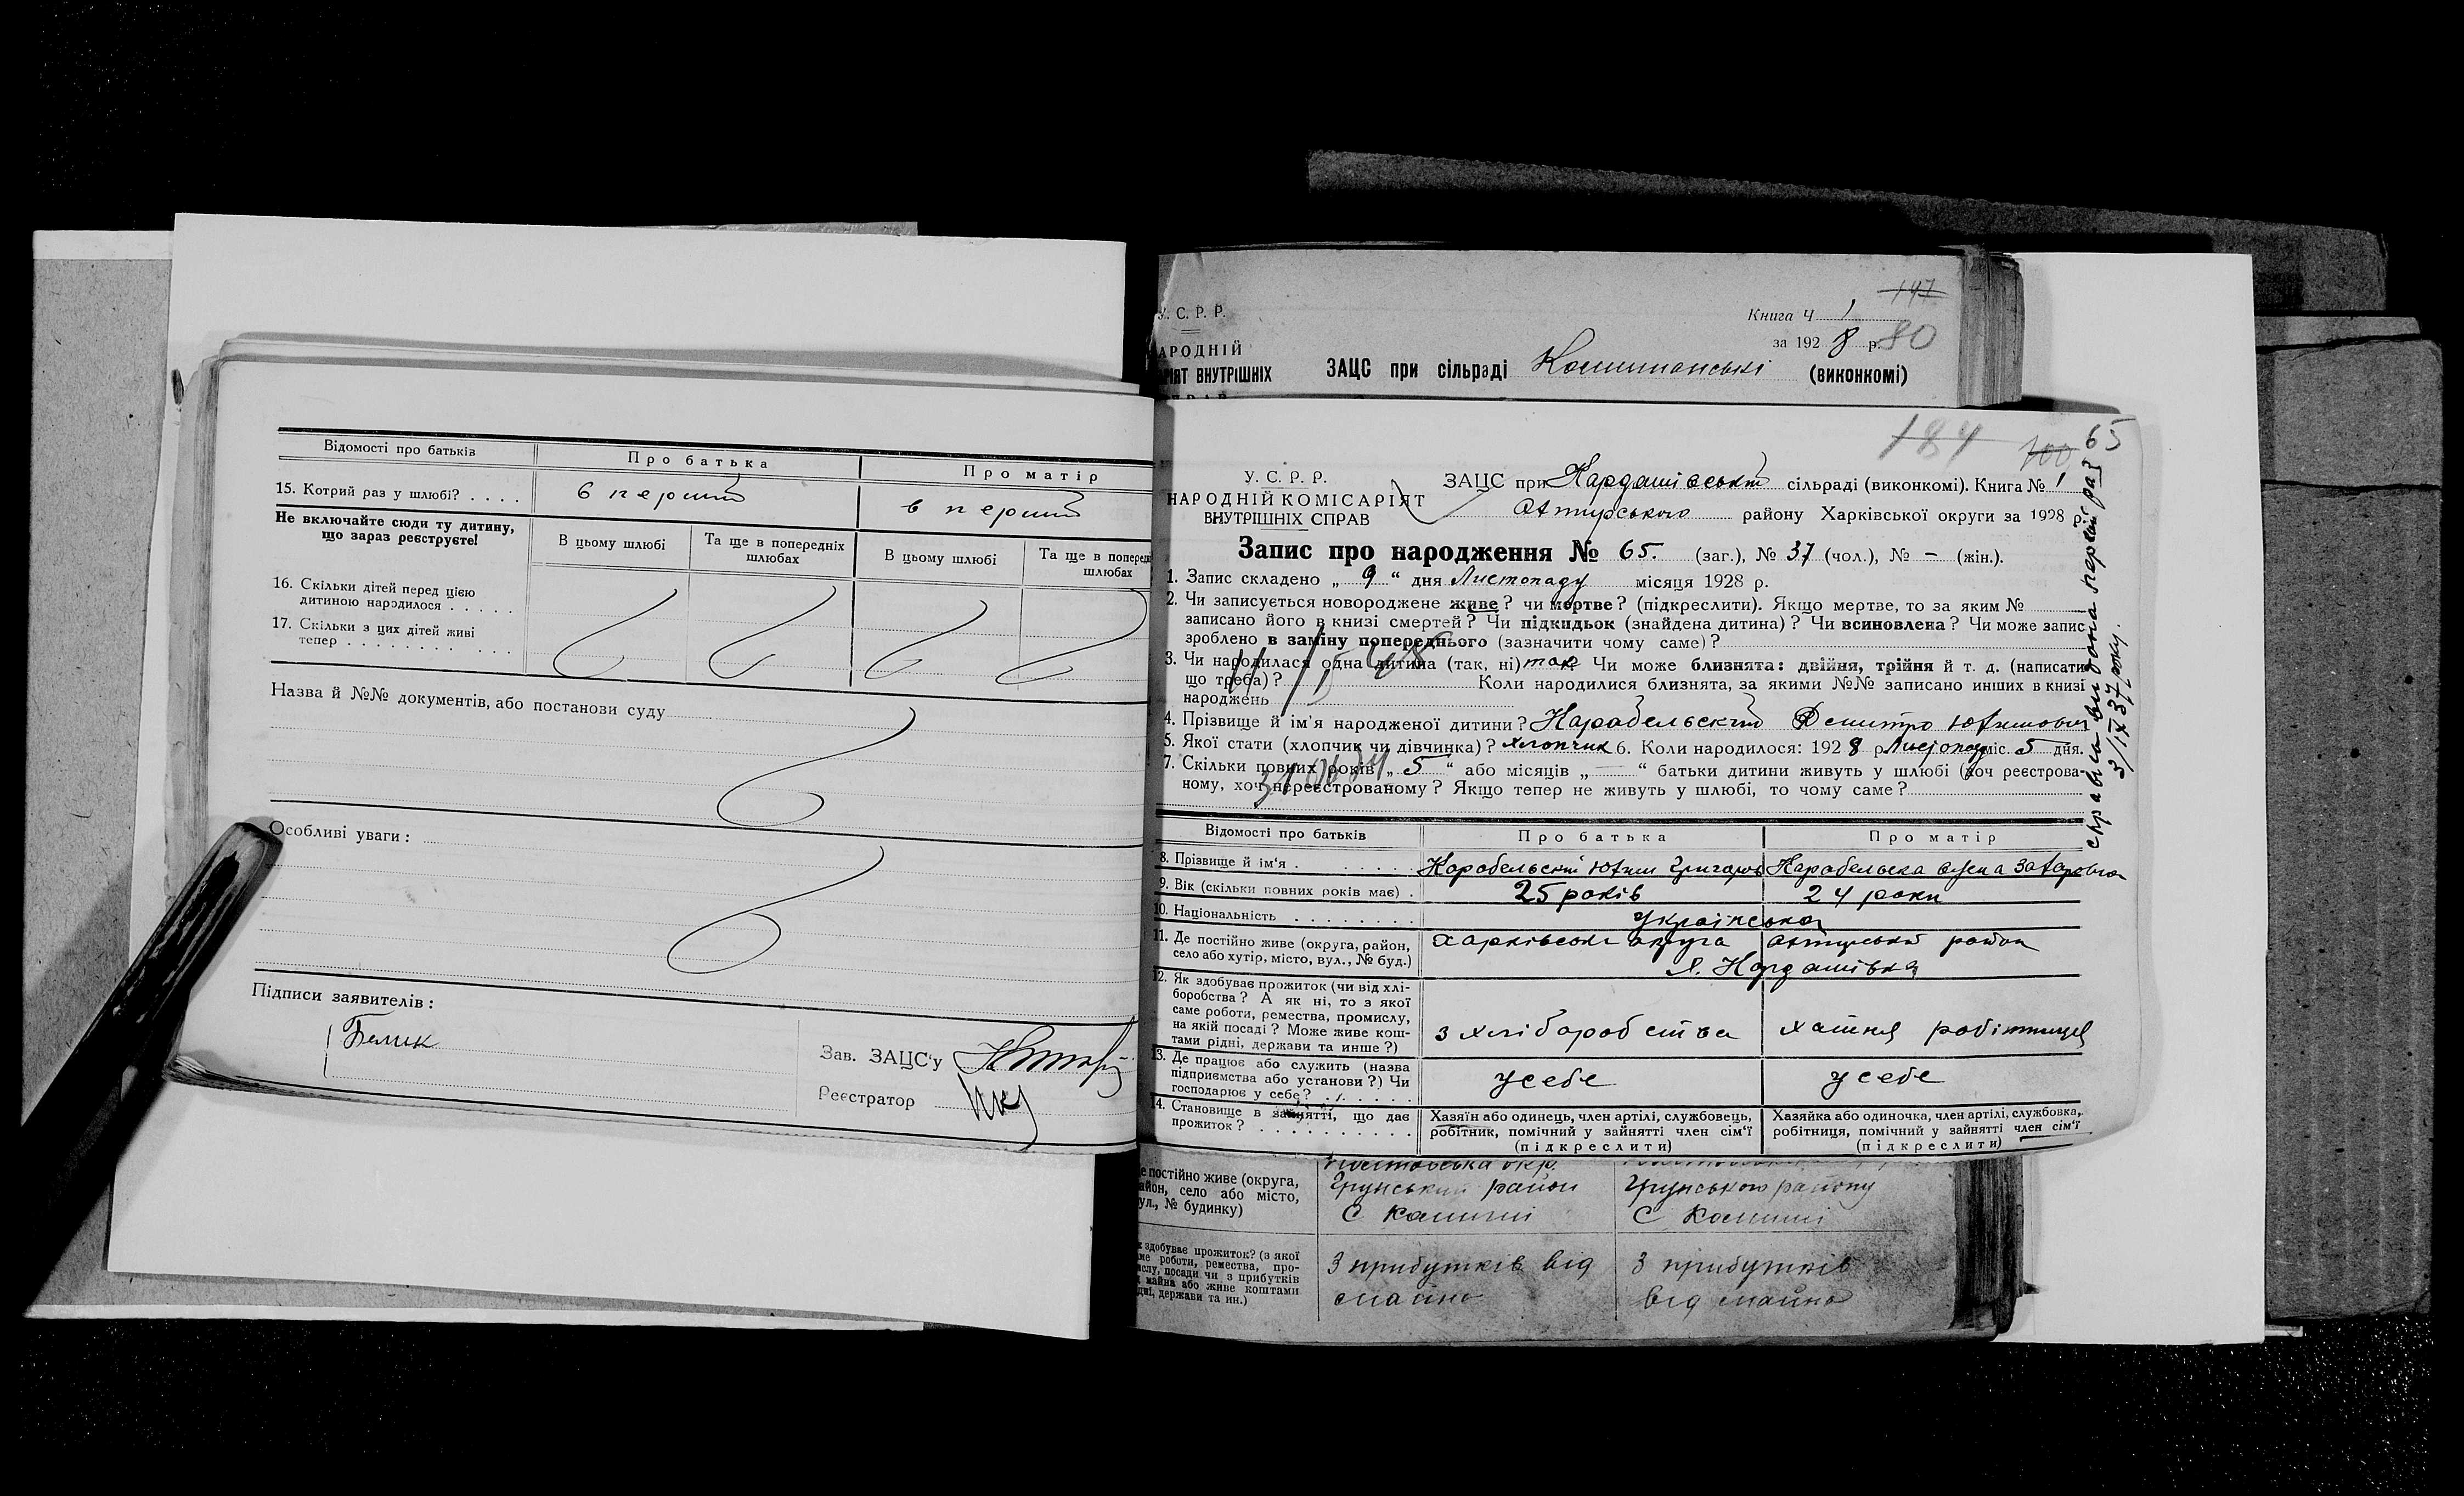 Відомості про батьків
Про батька
Про матір
15. Котрий раз у шлюбі? . . . .
в перший
в перший
Не включайте сюди ту дитину,
що зараз реєструєте!
В цьому шлюбі
Та ще в попередніх
шлюбах
В цьому шлюбі
Та ще в поперед
шлюбах
16. Скільки дітей перед цією
дитиною народилося . . . . .
17. Скільки з цих дітей живі
тепер . . . . . . . . . . .
Назва й №№ документів, або постанови суду
Особливі уваги:
Підписи заявителів:
Белик
Зав. ЗАЦС'у
Реєстратор
У. С. Р. Р.
АРОДНІЙ
РІЯТ ВНУТРІШНІХ
147
Книга Ч 1
за 1928 р.
80
ЗАЦС при сільраді (виконкомі)
184
100
65
У. С. Р. Р.
НАРОДНІЙ КОМІСАРІЯТ
ВНУТРІШНІХ СПРАВ
ЗАЦС при Кардашівській сільраді (виконкомі). Книга № 1
Охтирського району Харківської округи за 1928 р.
Запис про народження № 65. (заг.), № 37 (чол.), № - (жін.).
1. Запис складено „ 9 “ дня Листопаду місяця 1928 р.
2. Чи записується новороджене живе? чи мертве? (підкреслити). Якщо мертве, то за яким №
записано його в книзі смертей? Чи підкидьок (знайдена дитина)? Чи всиновлена? Чи може запис
зроблено в заміну попереднього (зазначити чому саме)?
3. Чи народилася одна дитина (так, ні) так Чи може близнята: двійня, трійня й т. д. (написати
що треба)? Коли народилися близнята, за якими №№ записано инших в книзі
народжень
4. Прізвище й ім'я народженої дитини? Карабельский Дмитро Юхимович
5. Якої стати (хлопчик чи дівчинка)? хлопчик 6. Коли народилося: 1928 р. Листопад міс. 5 дня.
7. Скільки повних років „ 5 “ або місяців „ — “ батьки дитини живуть у шлюбі (хоч реєстрова-
ному, хоч нереєстрованому? Якщо тепер не живуть у шлюбі, то чому саме?
справка видана перший раз
3/IX 37 року.
Відомості про батьків
Про батька
Про матір
8. Прізвище й ім'я . . . . . . .
Карабельский Юхим Григоров
Карабельска Олена Захаровна
9. Вік (скільки повних років має) .
25 років
24 роки
10. Національність . . . . . . . .
Українська
11. Де постійно живе (округа, район,
село або хутір, місто, вул., № буд.)
Харківська округа Охтирський район
с. Кардашівка
12. Як здобуває прожиток (чи від хлі-
боробства? А як ні, то з якої
саме роботи, ремества, промислу,
на якій посаді? Може живе кош-
тами рідні, держави та инше?)
з хліборобства
хатня робітниця
13. Де працює або служить (назва
підприємства або установи?) Чи
господарює у себе? . . . . . .
у себе
у себе
14. Становище в занятті, що дає
прожиток? . . . . . . . . . .
Хазяїн або одинець, член артілі, службовець,
робітник, помічний у зайнятті член сім'ї
(підкреслити)
Хазяйка або одиночка, член артілі, службовка,
робітниця, помічний у зайнятті член сім'ї
(підкреслити)
е постійно живе (округа,
айон, село або місто,
ул., № будинку)
Грунський район
С Комиші
Грунського району
С Комиші
к здобуває прожиток? (з якої
ме роботи, ремества, про-
слу, посади чи з прибутків
д майна або живе коштами
дні, держави та ин.)
З прибутків від
майна
З прибутків
від майна